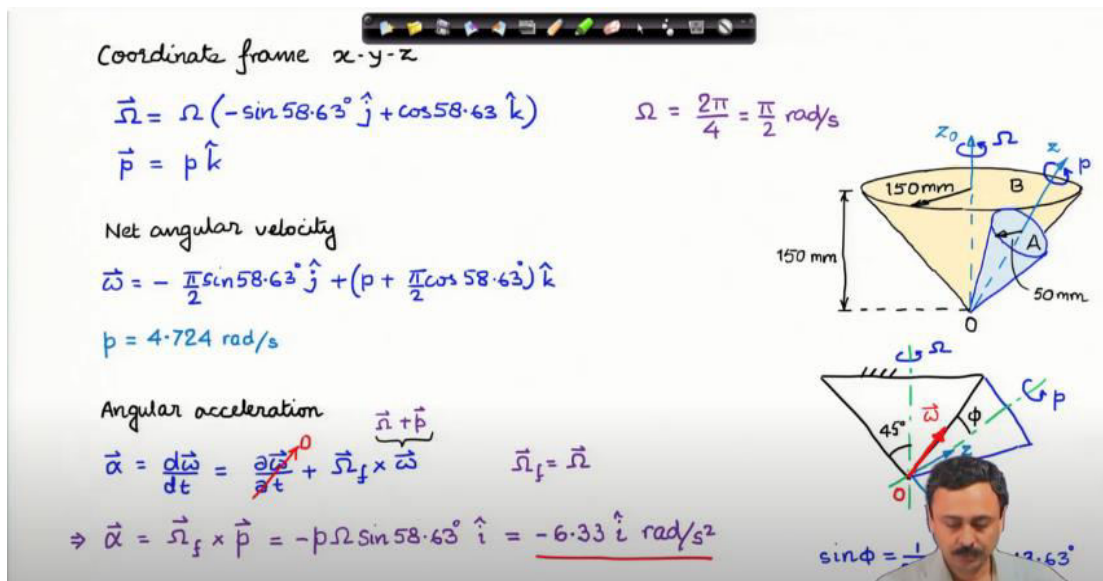 Coordinate frame x-y-z
Ω⃗ = Ω (-sin 58.63° ĵ + cos 58.63 k̂)
Ω = 2π/4 = π/2 rad/s
p⃗ = p k̂
Net angular velocity
ω⃗ = - π/2 sin 58.63° ĵ + (p + π/2 cos 58.63°) k̂
p = 4.724 rad/s
Angular acceleration
Ω⃗ + p⃗
α⃗ = dω⃗/dt = ∂ω⃗/∂t + Ω⃗f × ω⃗
0
Ω⃗f = Ω⃗
⇒ α⃗ = Ω⃗f × p⃗ = -pΩ sin 58.63° î = -6.33 î rad/s²
z₀
Ω
z
p
150mm
B
A
150 mm
50mm
O
Ω
p
45°
ω⃗
φ
z
O
sinφ = 1
.63°